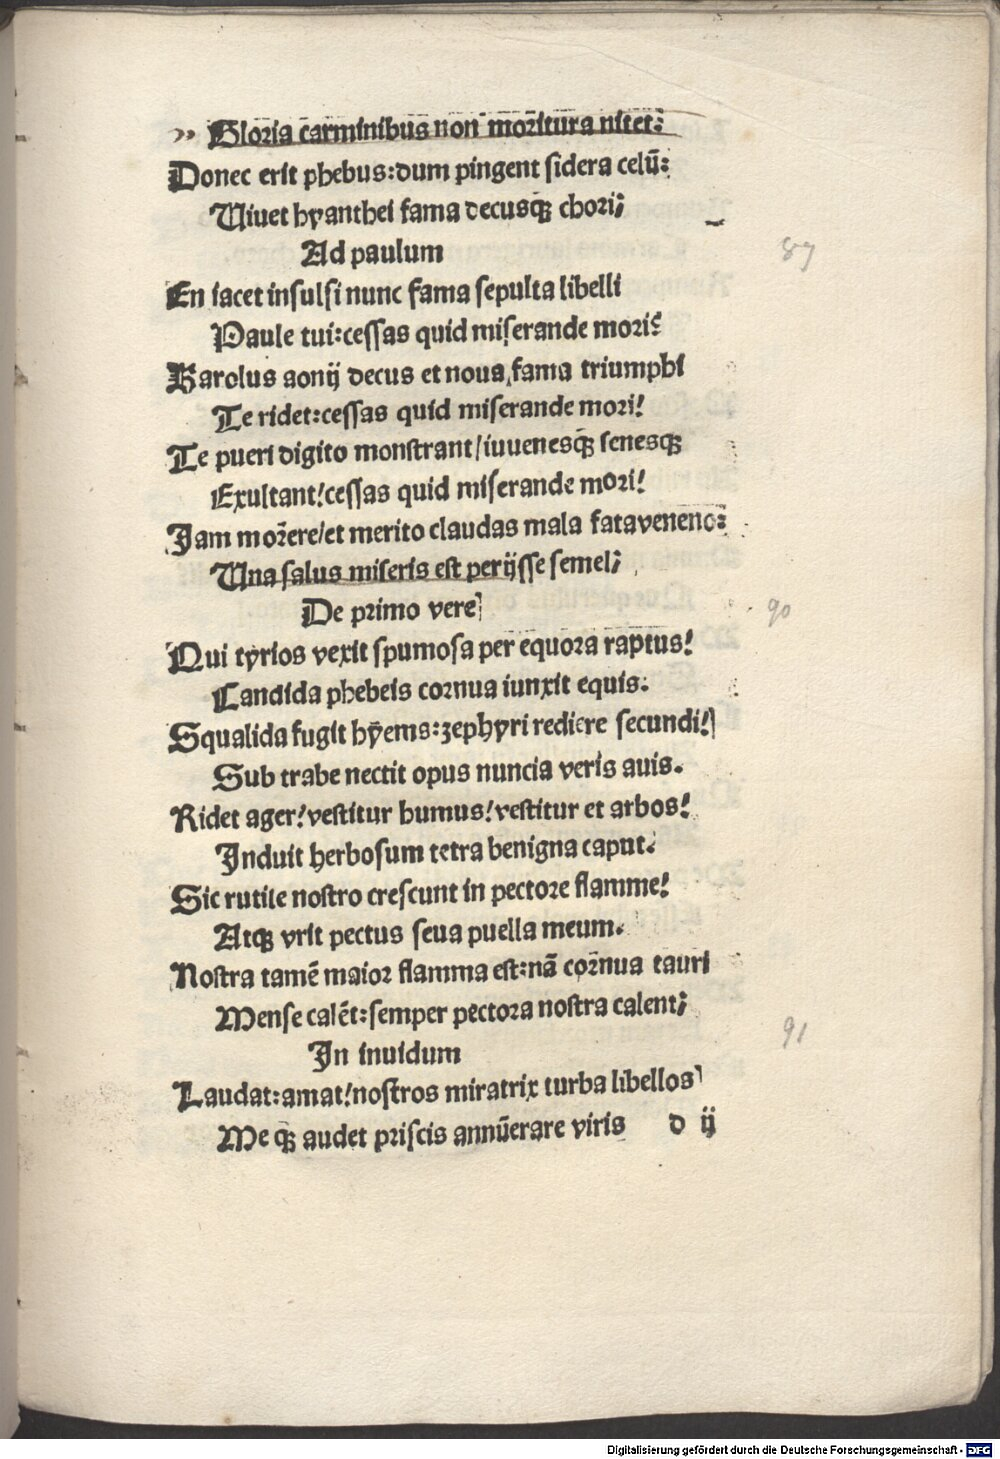 ›› Gloria carminibus non moritura nitet:
Donec erit phebus: dum pingent sidera celū:
Uiuet hyanthei fama decusqꝫ chori;
Ad paulum
87
En iacet insulsi nunc fama sepulta libelli
Paule tui: cessas quid miserande mori?
Karolus aonij decus et noua fama triumphi
Te ridet: cessas quid miserande mori!
Te pueri digito monstrant/ iuuenesqꝫ senesqꝫ
Exultant! cessas quid miserande mori!
Jam morere/ et merito claudas mala fata veneno:
Una salus miseris est perijsse semel;
De primo vere
90
Qui tyrios vexit spumosa per equora raptus!
Candida phebeis cornua iunxit equis.
Squalida fugit hyems: zephyri rediere secundi!
Sub trabe nectit opus nuncia veris auis.
Ridet ager! vestitur humus! vestitur et arbos!
Induit herbosum tetra benigna caput.
Sic rutile nostro crescunt in pectore flamme!
Atqꝫ vrit pectus seua puella meum.
Nostra tamē maior flamma est: nā cornua tauri
Mense calēt: semper pectora nostra calent;
In inuidum
91
Laudat: amat! nostros miratrix turba libellos
Me qꝫ audet priscis annūerare viris d ij
Digitalisierung gefördert durch die Deutsche Forschungsgemeinschaft - DFG